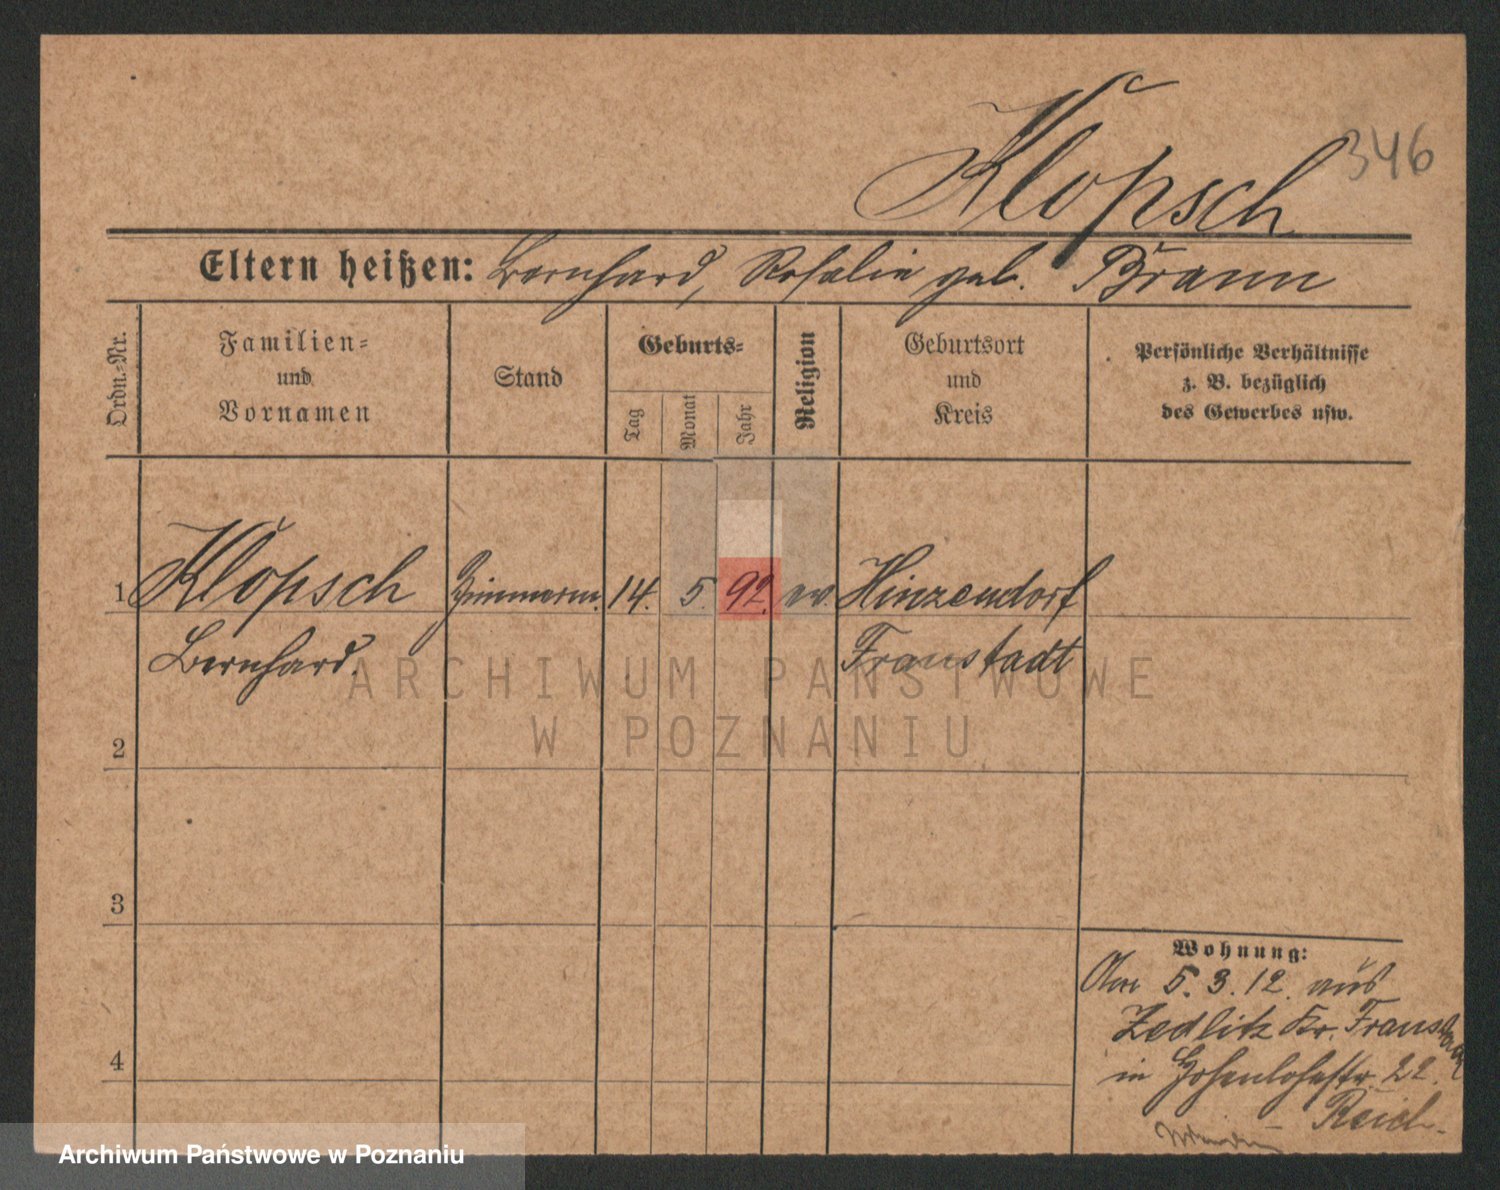 Klopsch
346
Eltern heißen: Bernhard, Rosalie geb. Braun
Ordn.-Nr.
Familien-
und
Vornamen
Stand
Geburts-
Tag
Monat
Jahr
Religion
Geburtsort
und
Kreis
Persönliche Verhältnisse
z. B. bezüglich
des Gewerbes usw.
1 Klopsch Zimmerm. 14. 5. 92. ev. Hinzendorf
Bernhard. Fraustadt
ARCHIWUM PAŃSTWOWE
W POZNANIU
2
3
4
Wohnung:
Am 5.3.12. aus
Zedlitz Kr. Fraustadt
in Hohenlohestr. 22.
Reich.
Archiwum Państwowe w Poznaniu